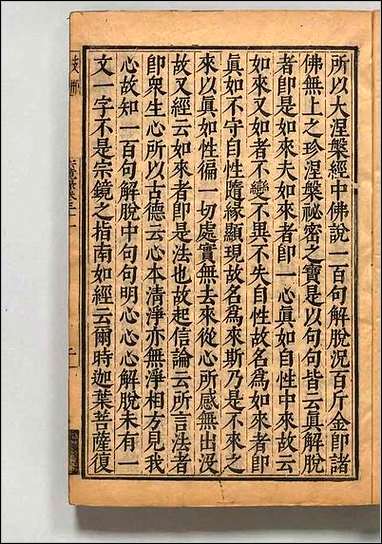 所以大涅槃經中佛說一百句解脫況百斤金即諸
佛無上之珍涅槃祕密之寶是以句句皆云真解脫
者即是如來夫如來者即一心真如自性中來故云
如來又如者不變不異不失自性故名為如來者即
真如不守自性隨緣顯現故名為來斯乃是不來之
來以真如性徧一切處實無去來從心所感無出沒
故又經云如來者即是法也故起信論云所言法者
即衆生心所以古德云心本清淨亦無淨相方見我
心故知一百句解脫中句句明心心心解脫未有一
文一字不是宗鏡之指南如經云爾時迦葉菩薩復